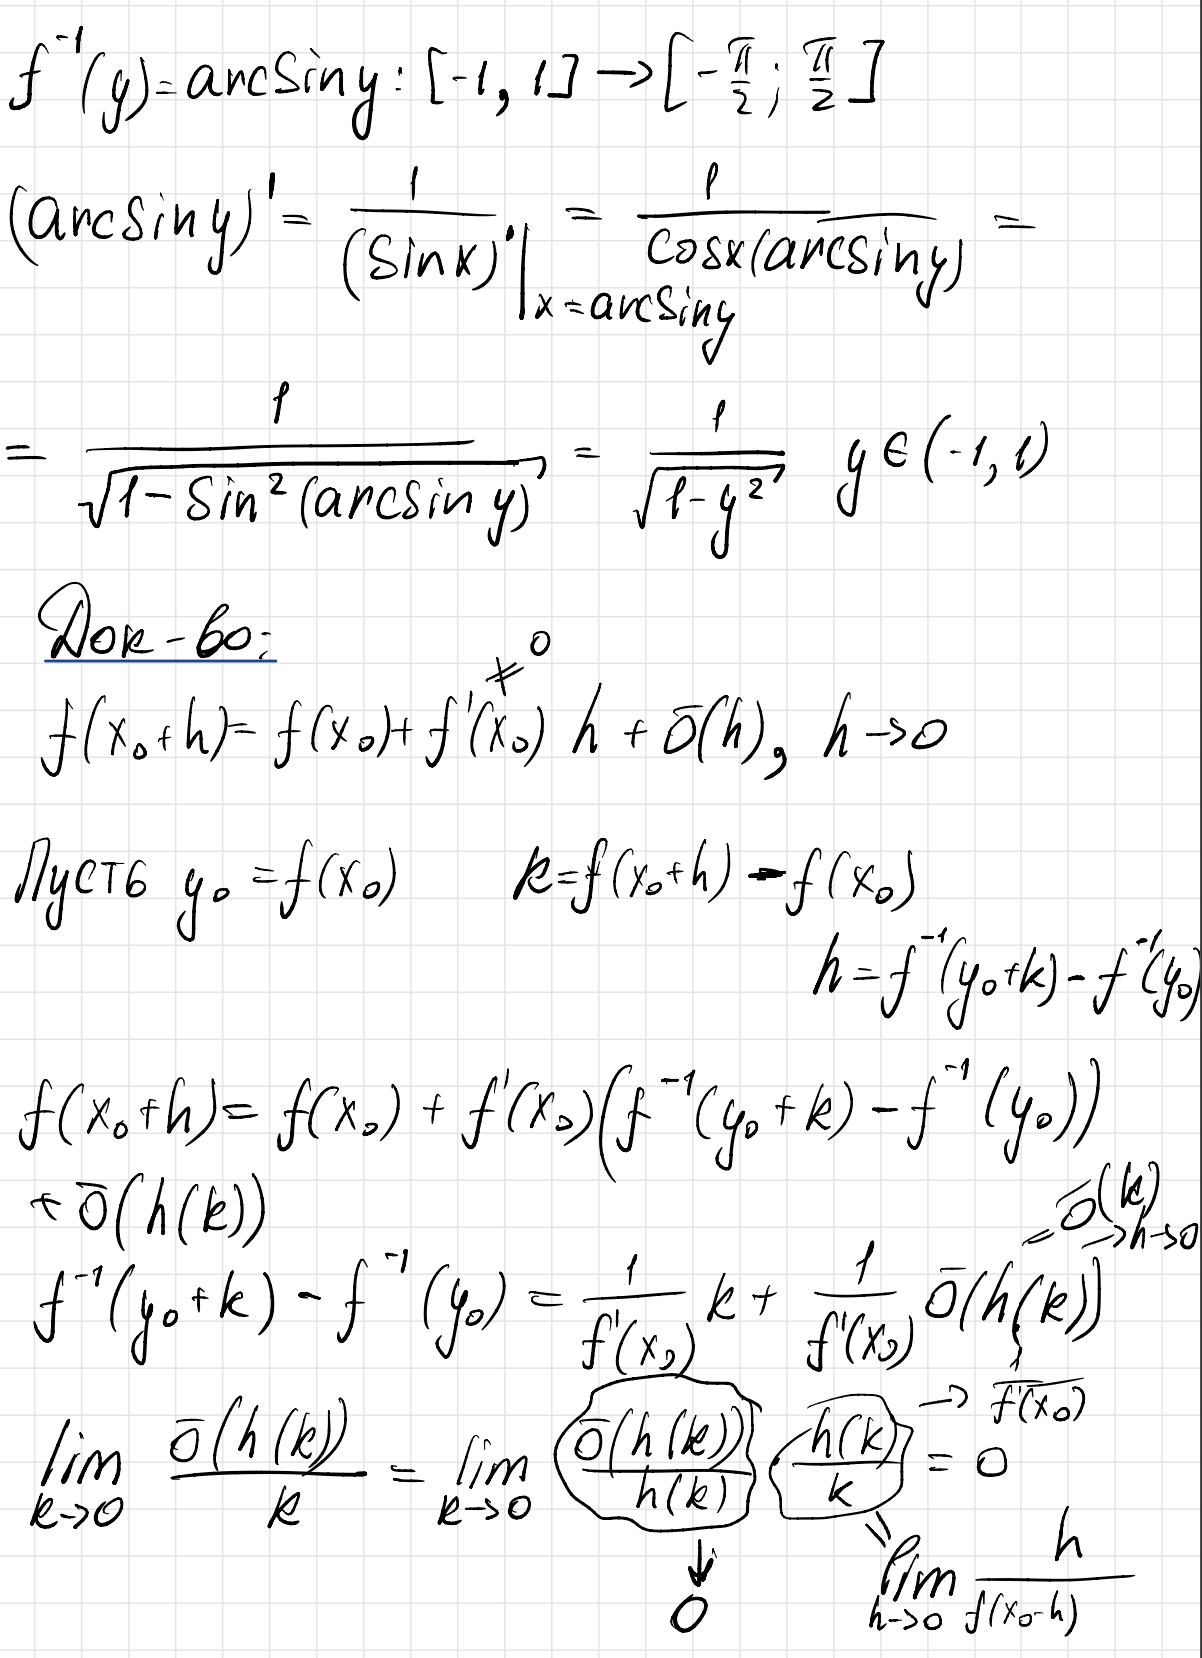 f⁻¹(y) = arcsin y : [-1, 1] → [-π/2 ; π/2]
(arcsin y)' = 1/(sin x)' |ₓ₌arcsin y = 1/cosx(arcsin y) =
= 1/√(1 - sin²(arcsin y)) = 1/√(1 - y²) y ∈ (-1, 1)
Док-во:
≠ 0
f(x₀+h) = f(x₀) + f'(x₀) h + ō(h), h → 0
Пусть y₀ = f(x₀) k = f(x₀+h) - f(x₀)
h = f⁻¹(y₀+k) - f⁻¹(y₀)
f(x₀+h) = f(x₀) + f'(x₀)(f⁻¹(y₀+k) - f⁻¹(y₀))
+ ō(h(k))
= ō(k) → h→0
f⁻¹(y₀+k) - f⁻¹(y₀) = 1/f'(x₀) k + 1/f'(x₀) ō(h(k))
lim k→0 ō(h(k))/k = lim k→0 ō(h(k))/h(k) h(k)/k = 0
→ 1/f'(x₀)
↓ 0
lim h→0 h/f(x₀-h)